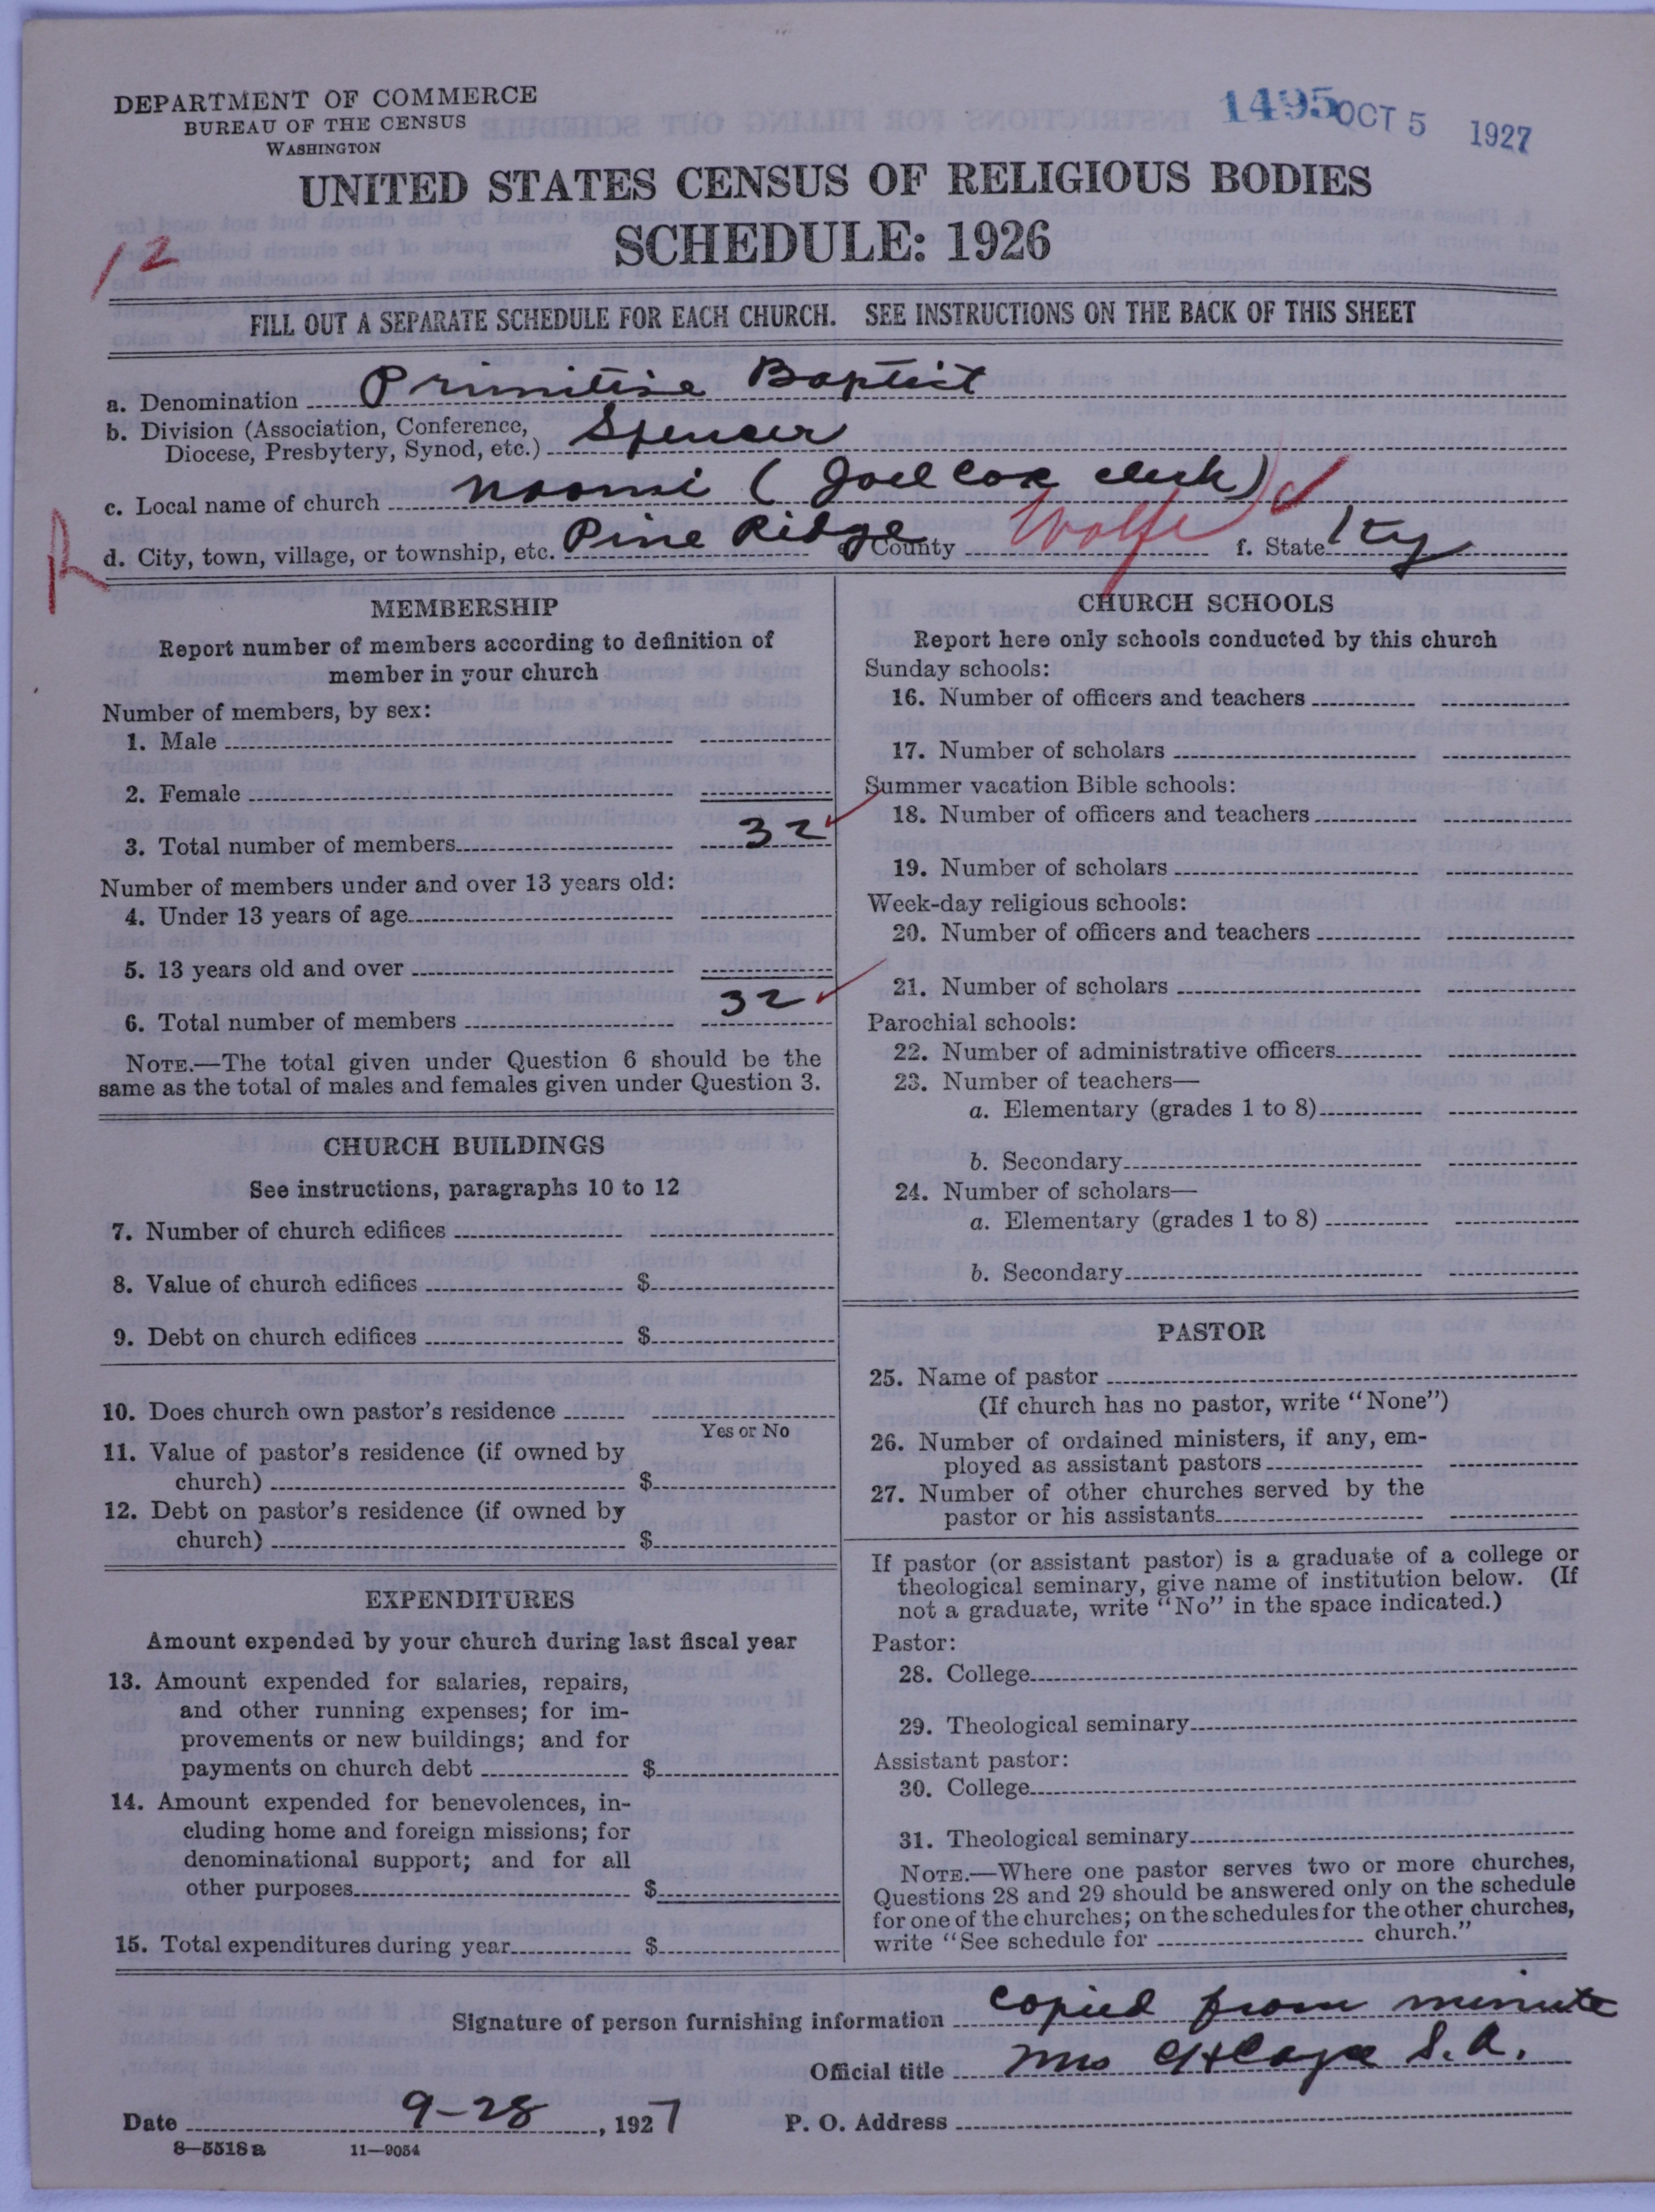 DEPARTMENT OF COMMERCE
BUREAU OF THE CENSUS
WASHINGTON
1495 OCT 5 1927
UNITED STATES CENSUS OF RELIGIOUS BODIES
SCHEDULE: 1926
12
FILL OUT A SEPARATE SCHEDULE FOR EACH CHURCH. SEE INSTRUCTIONS ON THE BACK OF THIS SHEET
a. Denomination Primitive Baptist
b. Division (Association, Conference,
Diocese, Presbytery, Synod, etc.) Spencer
c. Local name of church Naomi (Joel Cox clerk)
R
d. City, town, village, or township, etc. Pine Ridge e. County Wolfe f. State Ky
MEMBERSHIP
Report number of members according to definition of
member in your church
Number of members, by sex:
1. Male
2. Female
3. Total number of members 32
Number of members under and over 13 years old:
4. Under 13 years of age
5. 13 years old and over
6. Total number of members 32
NOTE.—The total given under Question 6 should be the
same as the total of males and females given under Question 3.
CHURCH BUILDINGS
See instructions, paragraphs 10 to 12
7. Number of church edifices
8. Value of church edifices $
9. Debt on church edifices $
10. Does church own pastor's residence
Yes or No
11. Value of pastor's residence (if owned by
church) $
12. Debt on pastor's residence (if owned by
church) $
EXPENDITURES
Amount expended by your church during last fiscal year
13. Amount expended for salaries, repairs,
and other running expenses; for im-
provements or new buildings; and for
payments on church debt $
14. Amount expended for benevolences, in-
cluding home and foreign missions; for
denominational support; and for all
other purposes $
15. Total expenditures during year $
CHURCH SCHOOLS
Report here only schools conducted by this church
Sunday schools:
16. Number of officers and teachers
17. Number of scholars
Summer vacation Bible schools:
18. Number of officers and teachers
19. Number of scholars
Week-day religious schools:
20. Number of officers and teachers
21. Number of scholars
Parochial schools:
22. Number of administrative officers
23. Number of teachers—
a. Elementary (grades 1 to 8)
b. Secondary
24. Number of scholars—
a. Elementary (grades 1 to 8)
b. Secondary
PASTOR
25. Name of pastor
(If church has no pastor, write "None")
26. Number of ordained ministers, if any, em-
ployed as assistant pastors
27. Number of other churches served by the
pastor or his assistants
If pastor (or assistant pastor) is a graduate of a college or
theological seminary, give name of institution below. (If
not a graduate, write "No" in the space indicated.)
Pastor:
28. College
29. Theological seminary
Assistant pastor:
30. College
31. Theological seminary
NOTE.—Where one pastor serves two or more churches,
Questions 28 and 29 should be answered only on the schedule
for one of the churches; on the schedules for the other churches,
write "See schedule for church."
Signature of person furnishing information copied from minute
Official title Mrs S. A.
Date 9-28, 1927 P. O. Address
8—5518a 11—9054